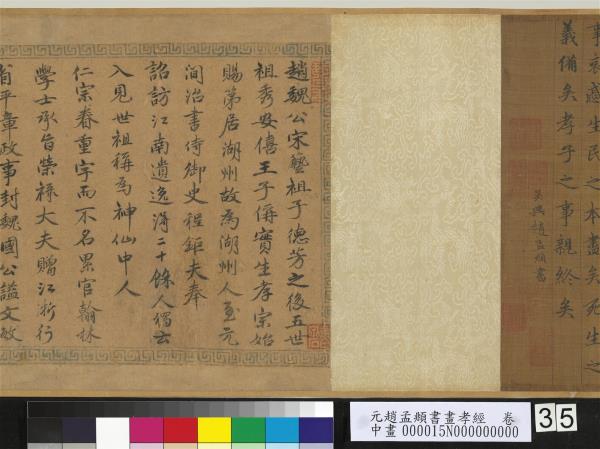 事哀慼生民之本盡矣死生之
義備矣孝子之事親終矣
吳興趙孟頫書
趙魏公宋藝祖子德芳之後五世
祖秀安僖王子偁實生孝宗始
賜第居湖州故為湖州人至元
間治書侍御史程鉅夫奉
詔訪江南遺逸得二十餘人獨公
入見世祖稱為神仙中人
仁宗眷重字而不名累官翰林
學士承旨榮祿大夫贈江浙行
省平章政事封魏國公謚文敏
元趙孟頫書畫孝經 卷
中畫 000015N000000000
35